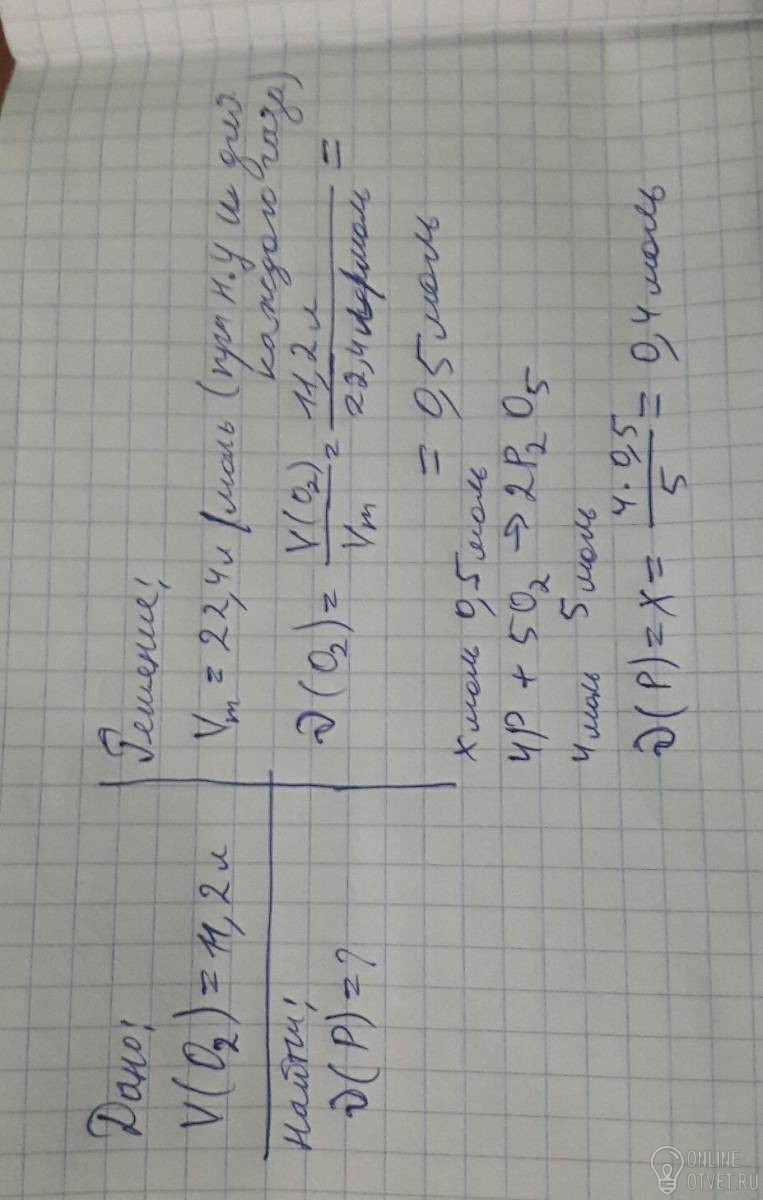 Дано:
V(O₂) = 11,2 л
Найти:
ν(P) = ?
Решение:
Vm = 22,4 л/моль (при н.у и для
каждого газа)
ν(O₂) = V(O₂)/Vm = 11,2 л/22,4 л/моль =
= 0,5 моль
x моль 0,5 моль
4P + 5O₂ → 2P₂O₅
4 моль 5 моль
ν(P) = x = 4·0,5/5 = 0,4 моль
ONLINE
OTVET.RU